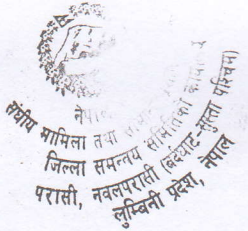 नेपाल
संघीय मामिला तथा
जिल्ला समन्वय समितिको
परासी, नवलपरासी (बर्दघाट-सुस्ता पश्चिम)
लुम्बिनी प्रदेश, नेपाल